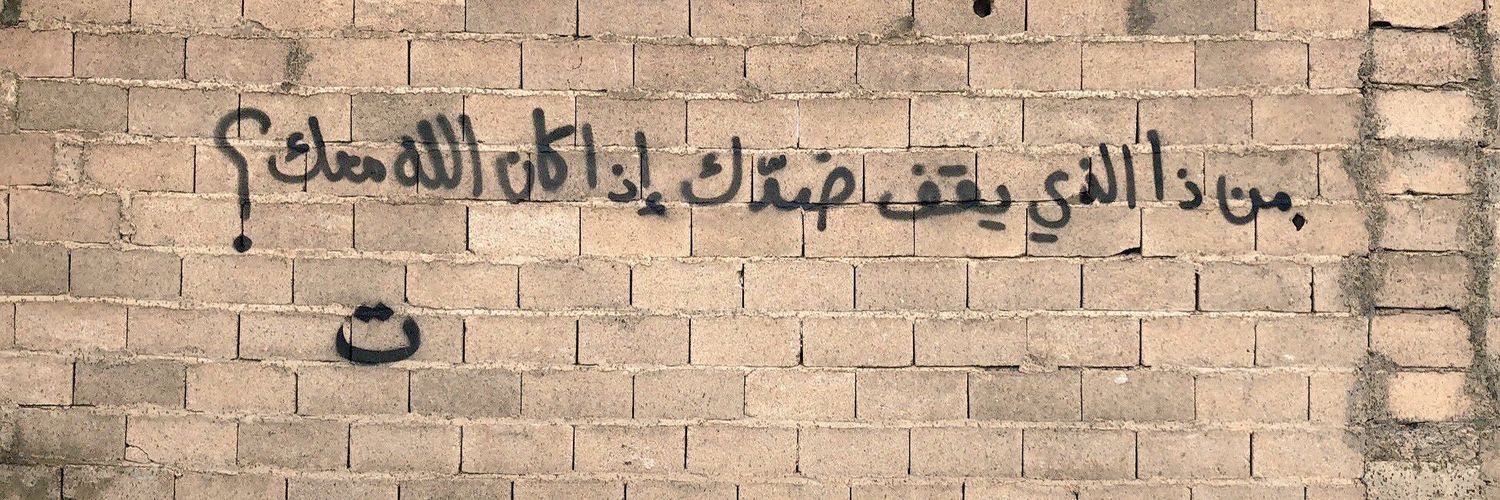 من ذا الذي يقف ضدّك إذا كان الله معك؟
ت